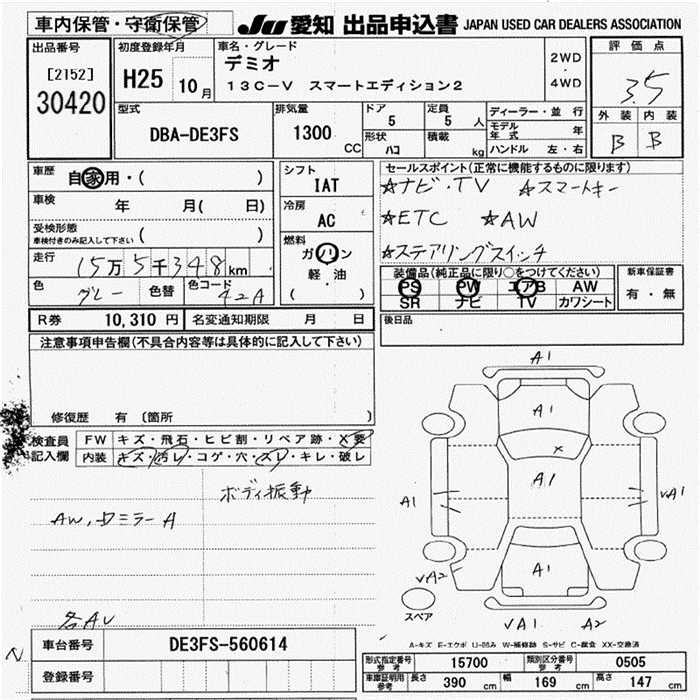 車内保管・守衛保管 JU 愛知 出品申込書 JAPAN USED CAR DEALERS ASSOCIATION
出品番号 初度登録年月 車名・グレード 評価点
[2152] H25 10月 デミオ 2WD・4WD 3.5
30420 13C-V スマートエディション2
型式 排気量 ドア 定員 ディーラー・並行 外装 内装
DBA-DE3FS 1300 CC 5 5 人 モデル年式 年 B B
形状 ハコ 積載 kg ハンドル 左・右
車歴 自家用・( ) シフト セールスポイント(正常に機能するものに限ります)
IAT ☆ナビ・TV ☆スマートキー
車検 年 月( 日) 冷房 AC ☆ETC ☆AW
受検形態 ( )
車検付きのみ記入して下さい 燃料 ☆ステアリングスイッチ
走行 15万5千348km ガソリン 装備品(純正品に限り○をつけてください) 新車保証書
軽・油 PS PW エアB AW 有・無
色 グレー 色替 色コード 42A ( ) SR ナビ TV カワシート
R券 10,310 円 名変通知期限 月 日 後日品
注意事項申告欄(不具合内容等は具体的に記入して下さい)
A1
修復歴 有 〔箇所 〕 A1
検査員 FW キズ・飛石・ヒビ割・リペア跡・X要 X
記入欄 内装 キズ・汚レ・コゲ・穴・スレ・キレ・破レ
ボディ振動 A1
AW, A A1 vA1
A1
vA2
スペア
vA1 A2
A-キズ E-エクボ U-凹み W-補修跡 S-サビ C-腐食 XX-交換済
車台番号 DE3FS-560614 形式指定番号 参考 15700 類別区分番号 参考 0505
登録番号 車庫証明用 参考 長さ 390 cm 幅 169 cm 高さ 147 cm